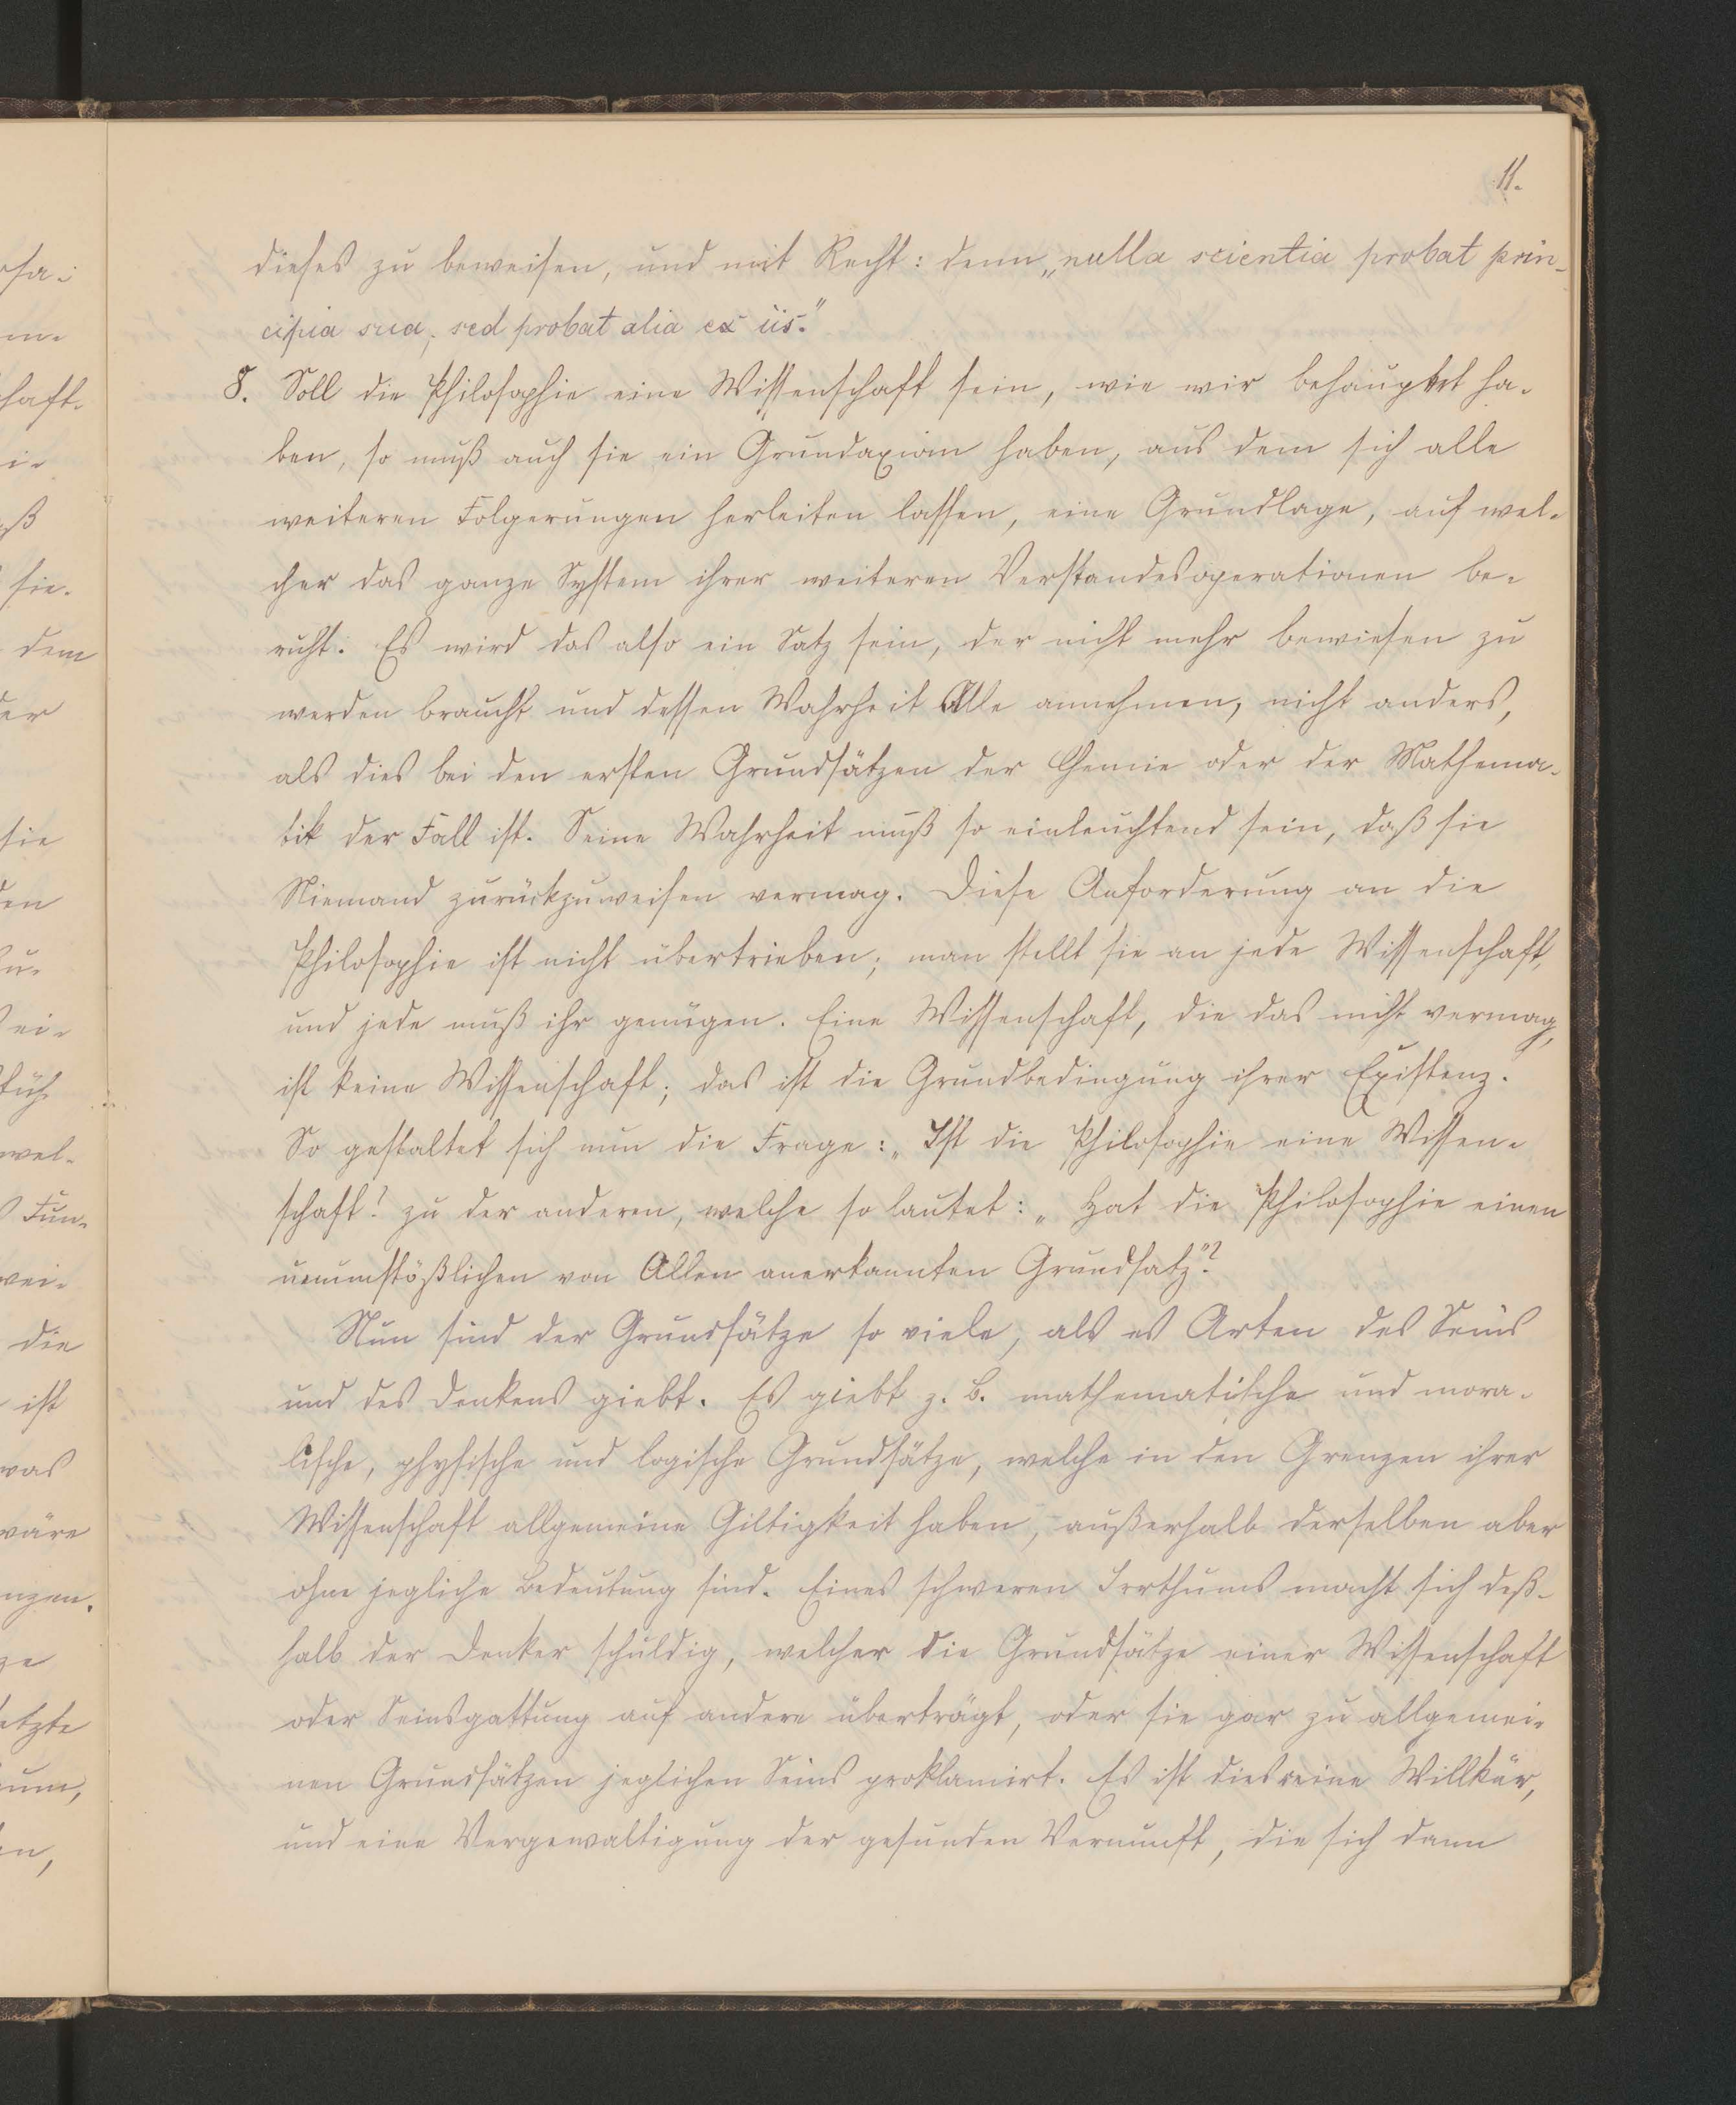 11.
dieses zu beweisen, und mit Recht: denn „nulla scientia probat prin-
cipia sua, sed probat alia ex iis."
8. Soll die Philosophie eine Wissenschaft sein, wie wir behauptet ha-
ben, so muß auch sie ein Grundaxiom haben, aus dem sich alle
weiteren Folgerungen herleiten lassen, eine Grundlage, auf wel-
cher das ganze System ihrer weiteren Verstandesoperationen be-
ruht. Es wird das also ein Satz sein, der nicht mehr bewiesen zu
werden braucht und dessen Wahrheit Alle annehmen, nicht anders,
als dies bei den ersten Grundsätzen der Chemie oder der Mathema-
tik der Fall ist. Seine Wahrheit muß so einleuchtend sein, daß sie
Niemand zurückzuweisen vermag. Diese Anforderung an die
Philosophie ist nicht übertrieben; man stellt sie an jede Wissenschaft,
und jede muß ihr genügen. Eine Wissenschaft, die das nicht vermag,
ist keine Wissenschaft; das ist die Grundbedingung ihrer Existenz.
So gestaltet sich nun die Frage: „Ist die Philosophie eine Wissen-
schaft? zu der anderen, welche so lautet: „Hat die Philosophie einen
unumstößlichen von Allen anerkannten Grundsatz"?
Nun sind der Grundsätze so viele, als es Arten des Seins
und des Denkens giebt. Es giebt z. B. mathematische und mora-
lische, physische und logische Grundsätze, welche in den Grenzen ihrer
Wissenschaft allgemeine Giltigkeit haben, außerhalb derselben aber
ohne jegliche Bedeutung sind. Eines schweren Irrthums macht sich deß-
halb der Denker schuldig, welcher die Grundsätze einer Wissenschaft
oder Seinsgattung auf andere überträgt, oder sie gar zu allgemei-
nen Grundsätzen jeglichen Seins proklamirt. Es ist dies reine Willkür,
und eine Vergewaltigung der gesunden Vernunft, die sich dann